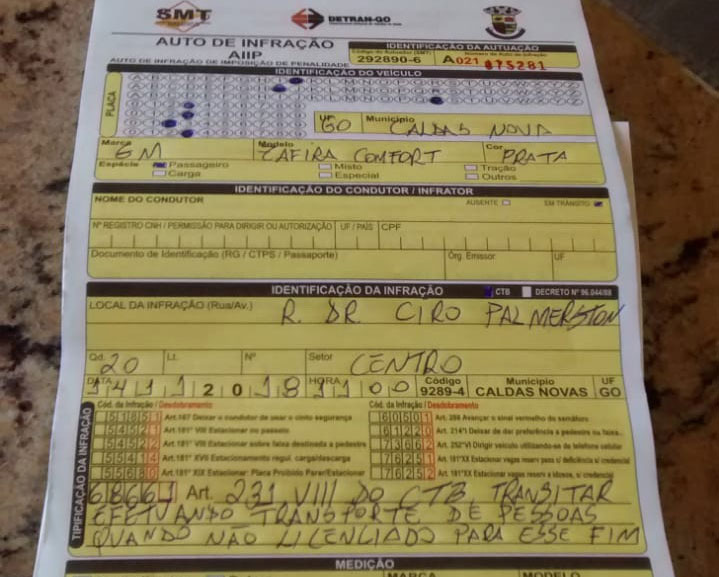 SMT
DETRAN-GO
AUTO DE INFRAÇÃO
AIIP
AUTO DE INFRAÇÃO DE IMPOSIÇÃO DE PENALIDADE
IDENTIFICAÇÃO DA AUTUAÇÃO
292890-6 A021 075281
IDENTIFICAÇÃO DO VEÍCULO
PLACA
UF GO Município CALDAS NOVA
Marca GM Modelo ZAFIRA COMFORT Cor PRATA
Espécie Passageiro Misto Tração
Carga Especial Outros
IDENTIFICAÇÃO DO CONDUTOR / INFRATOR
NOME DO CONDUTOR AUSENTE EM TRÂNSITO
Nº REGISTRO CNH / PERMISSÃO PARA DIRIGIR OU AUTORIZAÇÃO UF / PAÍS CPF
Documento de Identificação (RG / CTPS / Passaporte) Órg. Emissor UF
IDENTIFICAÇÃO DA INFRAÇÃO CTB DECRETO Nº 96.044/88
LOCAL DA INFRAÇÃO (Rua/Av.) R. DR. CIRO PALMERSTON
Qd. 20 Lt. Nº Setor CENTRO
DATA 14 11 2018 HORA 11 00 Código 9289-4 Município CALDAS NOVAS UF GO
TIPIFICAÇÃO DA INFRAÇÃO
Cód. da Infração / Desdobramento Cód. da Infração / Desdobramento
5185 1 Art. 167 Deixar o condutor de usar o cinto segurança 6050 1 Art. 208 Avançar o sinal vermelho do semáforo
5452 1 Art. 181* VIII Estacionar no passeio 6122 0 Art. 214*I Deixar de dar preferência a pedestre ou faixa
5452 2 Art. 181* VIII Estacionar sobre faixa destinada a pedestre 7366 2 Art. 252*VI Dirigir veículo utilizando-se de telefone celular
5541 4 Art. 181* XVII Estacionamento regul. carga/descarga 7625 1
5568 0 Art. 181* XIX Estacionar: Placa Proibido Parar/Estacionar 7625 2
6866 1 Art. 231 VIII DO CTB TRANSITAR
EFETUANDO TRANSPORTE DE PESSOAS
QUANDO NÃO LICENCIADO PARA ESSE FIM
MEDIÇÃO
MARCA MODELO